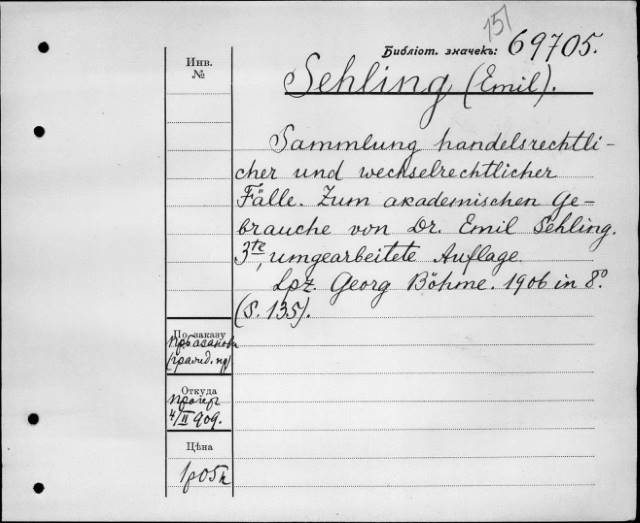 151
Библіот. значекъ: 69705.
Инв.
№
Sehling (Emil).
Sammlung handelsrechtli-
cher und wechselrechtlicher
Fälle. Zum akademischen Ge-
brauche von Dr. Emil Sehling.
3te, umgearbeitete Auflage.
Lpz. Georg Böhme. 1906 in 8º
(S. 135).
По заказу
Откуда
4/II 909.
Цѣна
1р05к